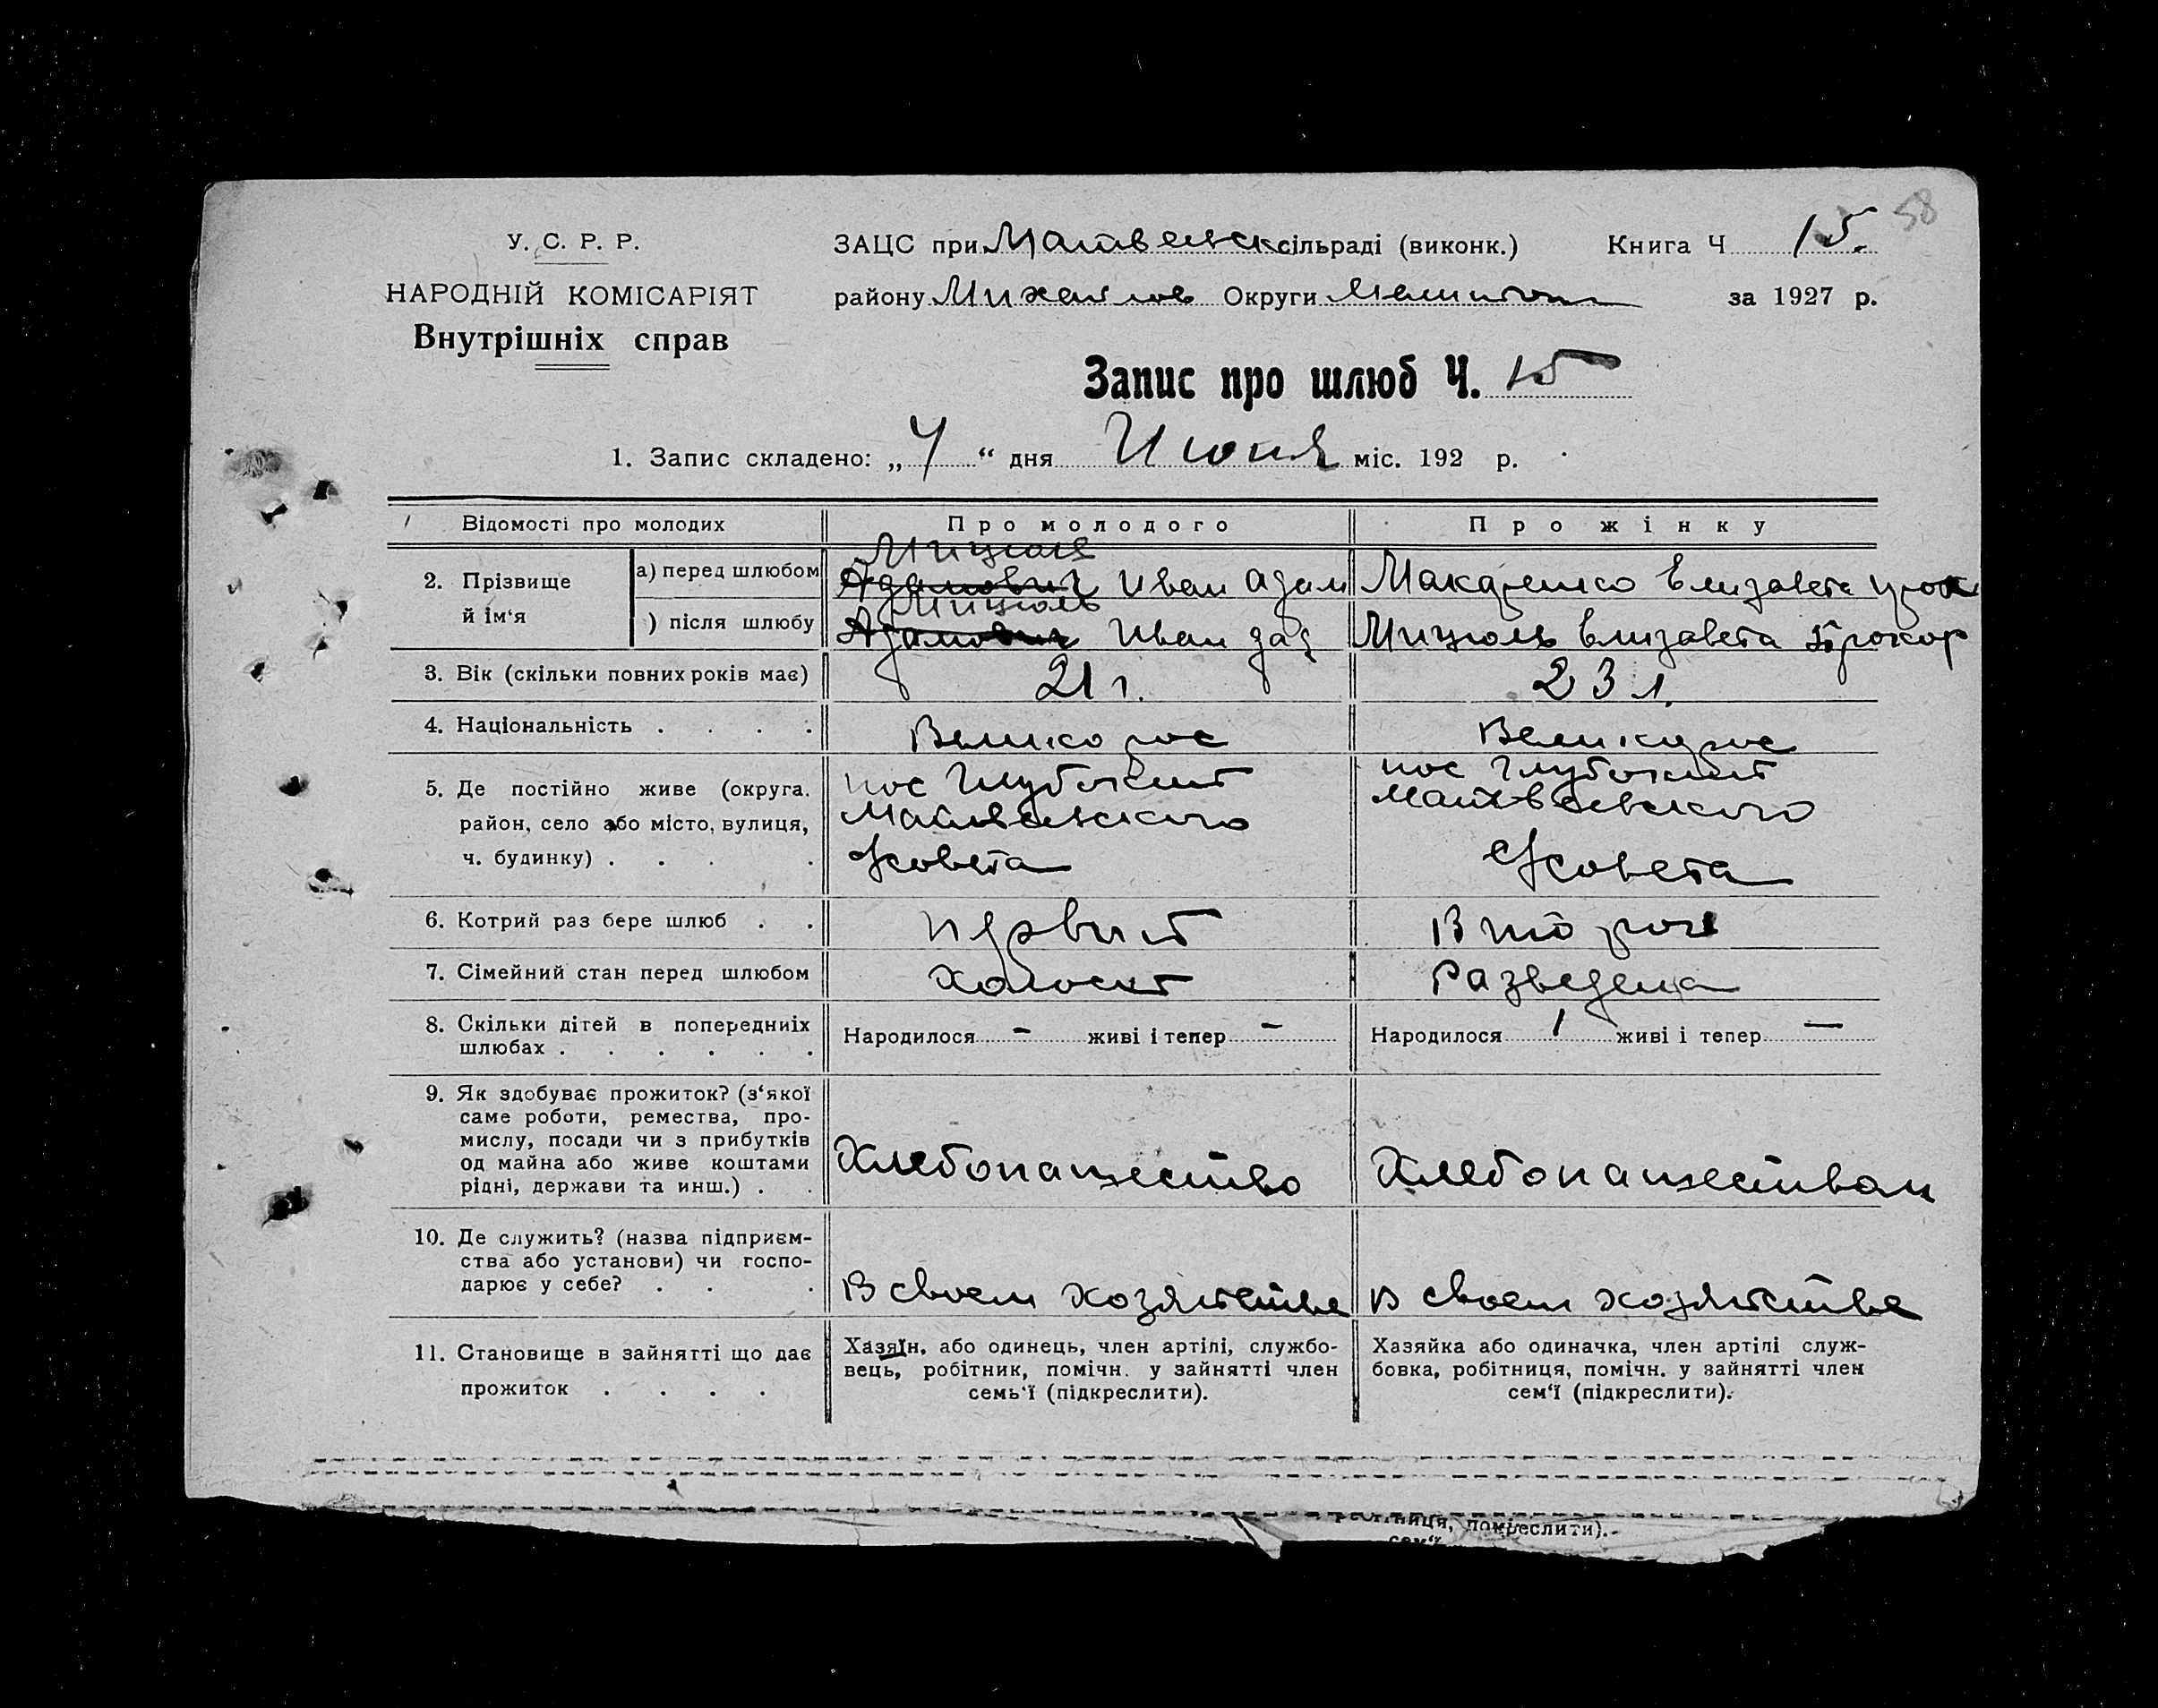 58
У. С. Р. Р.
НАРОДНІЙ КОМІСАРІЯТ
Внутрішніх справ
ЗАЦС при Матвеевск сільраді (виконк.) Книга Ч 15.
району Михайлов Округи за 1927 р.
Запис про шлюб Ч. 15
1. Запис складено: „ “ дня Июня міс. 192 р.
Відомості про молодих Про молодого Про жінку
2. Прізвище й ім‘я
а) перед шлюбом Мицюль Адамович Иван Адам Макаренко Елизавета Прок
) після шлюбу Мицюль Адамович Иван Мицюль Елизавета Прокоф
3. Вік (скільки повних років має) 21 г. 23 л.
4. Національність . . . . Великорос Великорос
5. Де постійно живе (округа. район, село або місто, вулиця, ч. будинку) . . . .
пос Глубокий
Матвеевского
с/совета
пос Глубокий
Матвеевского
с/совета
6. Котрий раз бере шлюб . . первый второй
7. Сімейний стан перед шлюбом холост Разведена
8. Скільки дітей в попередніх шлюбах . . . . . .
Народилося - живі і тепер -
Народилося 1 живі і тепер —
9. Як здобуває прожиток? (з‘якої
саме роботи, ремества, про-
мислу, посади чи з прибутків
од майна або живе коштами
рідні, держави та инш.) . .
Хлебопашество
Хлебопашеством
10. Де служить? (назва підприєм-
ства або установи) чи госпо-
дарює у себе? . . .
В своем хозяйстве
в своем хозяйстве
11. Становище в зайнятті що дає
прожиток . . . .
Хазяїн, або одинець, член артілі, службо-
вець, робітник, помічн. у зайнятті член
семь‘ї (підкреслити).
Хазяйка або одиначка, член артілі служ-
бовка, робітниця, помічн. у зайнятті член
сем‘ї (підкреслити).